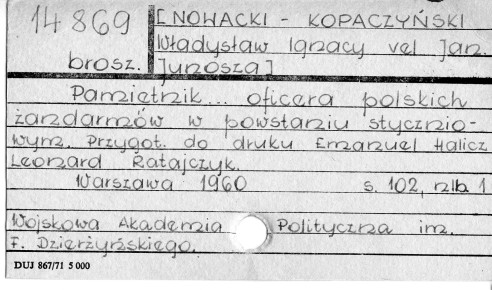 14869
[NOWACKI - KOPACZYŃSKI
Władysław Ignacy vel Jan.
brosz. Junosza]
Pamiętnik... oficera polskich
żandarmów w powstaniu stycznio-
wym. Przygot. do druku Emanuel Halicz
Leonard Ratajczyk.
Warszawa 1960 s. 102, nlb 1
Wojskowa Akademia Polityczna im.
F. Dzierżyńskiego.
DUJ 867/71 5 000